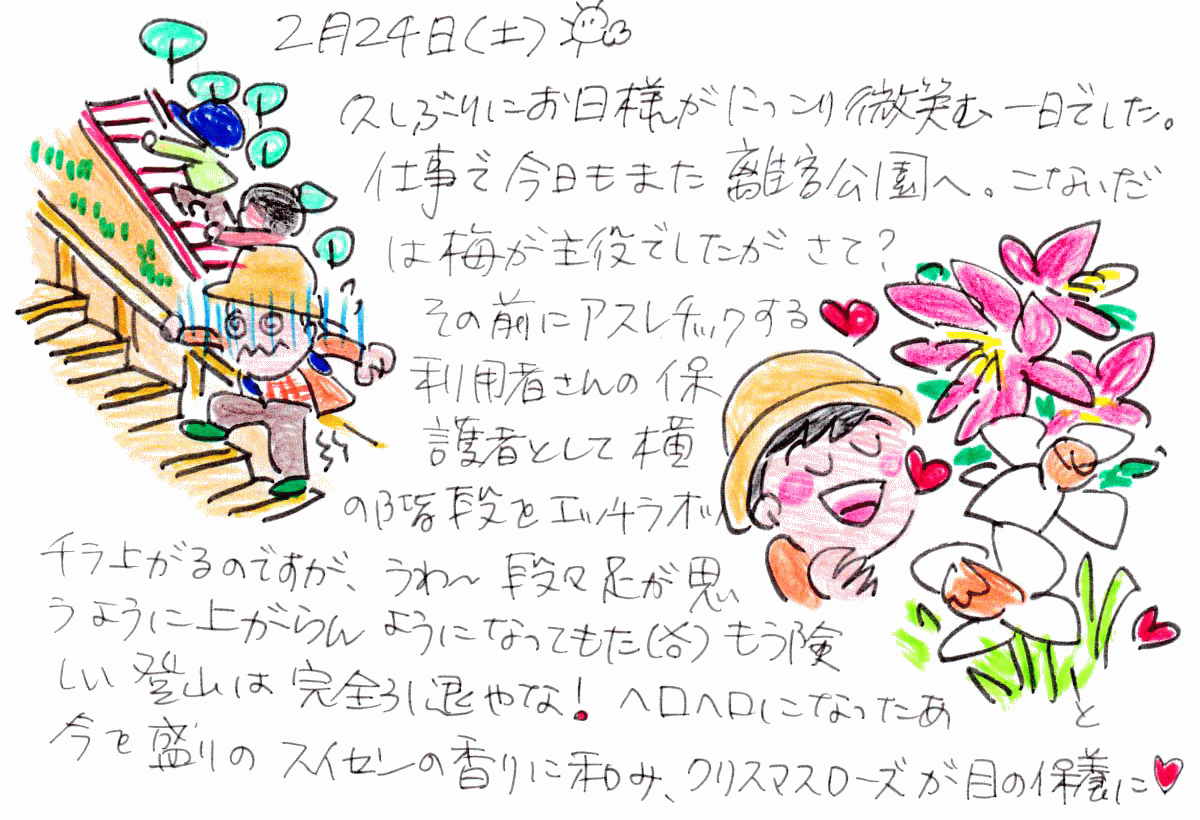 2月24日(土)
久しぶりにお日様がにっこり微笑む一日でした。
仕事で今日もまた離宮公園へ。こないだ
は梅が主役でしたがさて?
その前にアスレチックする
利用者さんの保
護者として横
の階段をエッチラオッ
チラ上がるのですが、うわ〜段々足が思
うように上がらんようになってもた(谷)もう険
しい登山は完全引退やな!ヘロヘロになったあと
今を盛りのスイセンの香りに和み、クリスマスローズが目の保養に